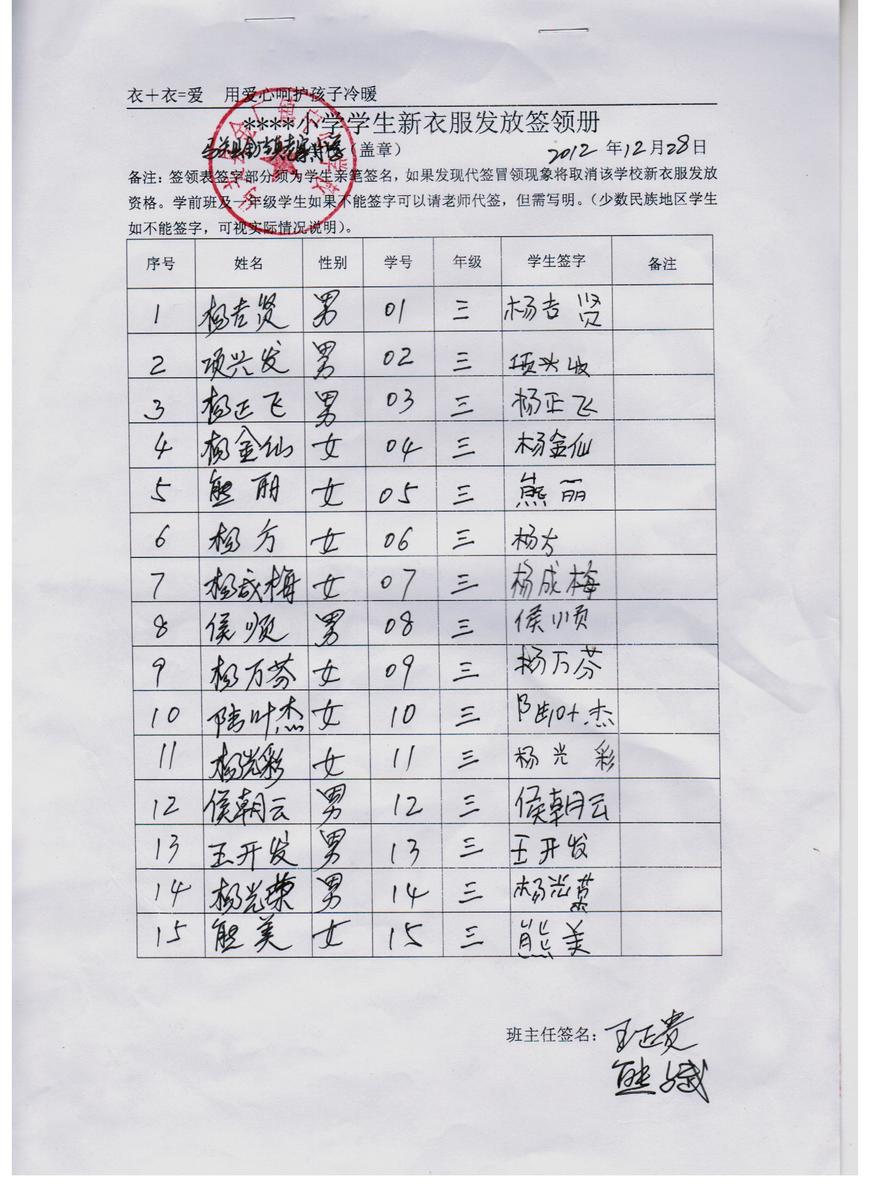 衣+衣=爱 用爱心呵护孩子冷暖
****小学学生新衣服发放签领册
（盖章） 2012年12月28日
备注：签领表签字部分须为学生亲笔签名，如果发现代签冒领现象将取消该学校新衣服发放
资格。学前班及一年级学生如果不能签字可以请老师代签，但需写明。（少数民族地区学生
如不能签字，可视实际情况说明）。
序号 姓名 性别 学号 年级 学生签字 备注
1 杨吉贤 男 01 三 杨吉贤
2 项兴发 男 02 三 项兴
3 杨正飞 男 03 三 杨正飞
4 杨金仙 女 04 三 杨金仙
5 熊丽 女 05 三 熊丽
6 杨方 女 06 三 杨方
7 杨成梅 女 07 三 杨成梅
8 侯顺 男 08 三 侯顺
9 杨万芬 女 09 三 杨万芬
10 陆叶杰 女 10 三 陆叶杰
11 杨光彩 女 11 三 杨光彩
12 侯朝云 男 12 三 侯朝云
13 王开发 男 13 三 王开发
14 杨光荣 男 14 三 杨光荣
15 熊美 女 15 三 熊美
班主任签名：王正贵
熊斌